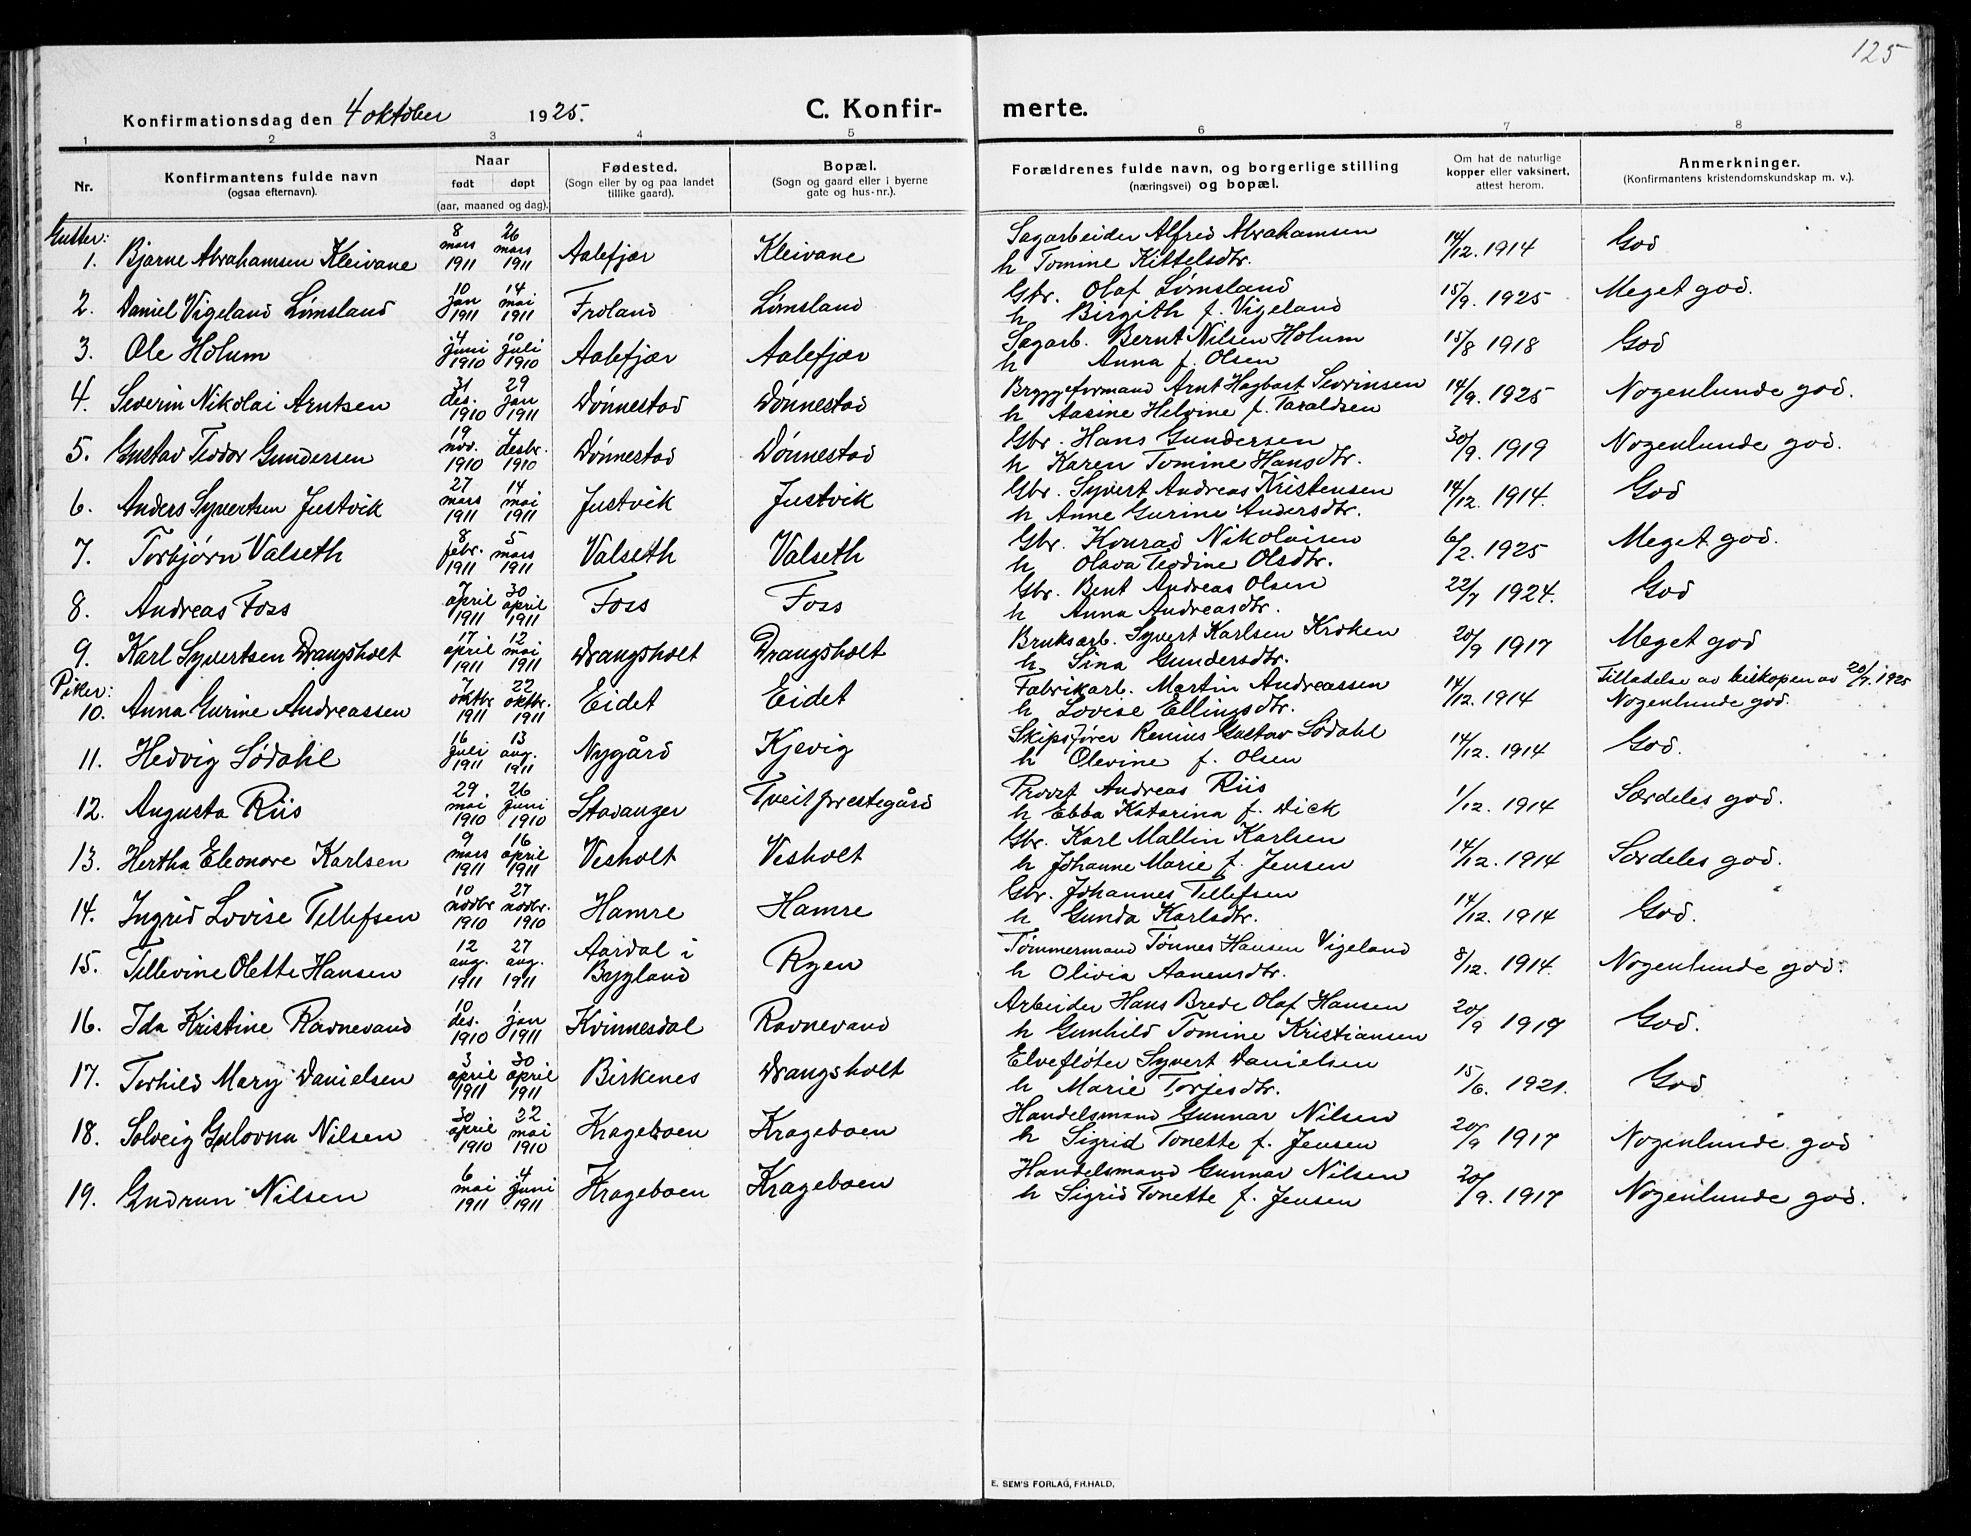 125
Konfirmationsdag den 4 oktober 1925. C. Konfir- merte.
1 2 3 4 5 6 7 8
Nr.
Konfirmantens fulde navn
(ogsaa efternavn).
Naar
født døpt
(aar, maaned og dag).
Fødested.
(Sogn eller by og paa landet
tillike gaard).
Bopæl.
(Sogn og gaard eller i byerne
gate og hus-nr.).
Forældrenes fulde navn, og borgerlige stilling
(næringsvei) og bopæl.
Om hat de naturlige
kopper eller vaksinert,
attest herom.
Anmerkninger.
(Konfirmantens kristendomskundskap m. v.).
Gutter:
1. Bjarne Abrahamsen Kleivane 8 mars 1911 26 mars 1911 Aalefjær Kleivane Sagarbeider Alfred Abrahamsen
h Tomine Kittelsdtr. 14/12. 1914 God
2. Daniel Vigeland Lømsland 10 jan 1911 14 mai 1911 Froland Lømsland Gbr. Olaf Lømsland
h Birgith f. Vigeland 15/9. 1925 Meget god.
3. Ole Holum 4 juni 1910 10 juli 1910 Aalefjær Aalefjær Sagarb. Bernt Nilsen Holum
h Anna f. Olsen 15/8 1918 God
4. Severin Nikolai Arntsen 31 des. 1910 29 jan 1911 Dønnestad Dønnestad Bryggeformand Arnt Hagbart Sevrinsen
h Aasine Helvine f. Taraldsen 14/9. 1925 Nogenlunde god.
5. Gustav Teodor Gundersen 19 nov. 1910 4 desbr. 1910 Dønnestad Dønnestad Gbr. Hans Gundersen
h Karen Tomine Hansdtr. 30/9. 1919 Nogenlunde god.
6. Anders Syvertsen Justvik 27 mars 1911 14 mai 1911 Justvik Justvik Gbr. Syvert Andreas Kristensen
h Anne Gurine Andersdtr. 14/12. 1914. God
7. Torbjørn Valseth 8 febr. 1911 5 mars 1911 Valseth Valseth Gbr. Konrad Nikolaisen
h Olava Teodine Olsdtr. 6/2. 1925 Meget god.
8. Andreas Foss 7 april 1911 30 april 1911 Foss Foss Gbr. Bent Andreas Olsen
h Anna Andreasdtr. 22/7 1924. God
9. Karl Syvertsen Drangsholt 17 april 1911 12 mai 1911 Drangsholt Drangsholt Bruksarb. Syvert Karlsen Kroken
h Sina Gundersdtr. 20/9 1917 Meget god
Piker:
10. Anna Gurine Andreassen 7 oktbr 1911 22 oktbr. 1911 Eidet Eidet Fabrikarb. Martin Andreassen
h Lovise Ellingsdtr. 14/12. 1914 Tilladelse av biskopen av 20/7. 1925
Nogenlunde god.
11. Hedvig Sødahl 16 juli 1911 13 aug. 1911 Nygård Kjevig Skipsfører Renius Gustav Sødahl
h Olevine f. Olsen 14/12. 1914 God.
12. Augusta Riis 29. mai 1910 26 juni 1910 Stavanger Tveit prestegård Provst Andreas Riis
h Ebba Katarina f. Dick 1/12. 1914 Særdeles god.
13. Hertha Eleonore Karlsen 9 mars 1911 16 april 1911 Vesholt Vesholt Gbr. Karl Mallin Karlsen
h Johanne Marie f. Jensen 14/12. 1914 Særdeles god.
14. Ingrid Lovise Tellefsen 10 novbr 1910 27 novbr. 1910 Hamre Hamre Gbr. Johannes Tellefsen
h Gunda Karlsdtr. 14/12. 1914 God.
15. Tellevine Olette Hansen 12 aug. 1911 27 aug. 1911 Aardal i Bygland Ryen Tømmermand Tønnes Hansen Vigeland
h Olivia Aanensdtr. 8/12. 1914. Nogenlunde god.
16. Ida Kristine Ravnevand 10 des. 1910 1 jan 1911 Kvinnesdal Ravnevand Arbeider Hans Brede Olaf Hansen
h Gunhild Tomine Kristiansen 20/9 1917 God.
17. Torhild Mary Danielsen 3 april 1911 30 april 1911 Birkenes Drangsholt Elvefløter Syvert Danielsen
h Marie Torjesdtr. 15/6. 1921. God
18. Solveig Gulovna Nilsen 30 april 1910 22 mai 1910 Krageboen Krageboen Handelsmand Gunnar Nilsen
h Sigrid Tonette f. Jensen 20/9 1917 Nogenlunde god
19. Gudrun Nilsen 6 mai 1911 4 juni 1911 Krageboen Krageboen Handelsmand Gunnar Nilsen
h Sigrid Tonette f. Jensen 20/9. 1917 Nogenlunde god.
E. SEM'S FORLAG, FR.HALD.